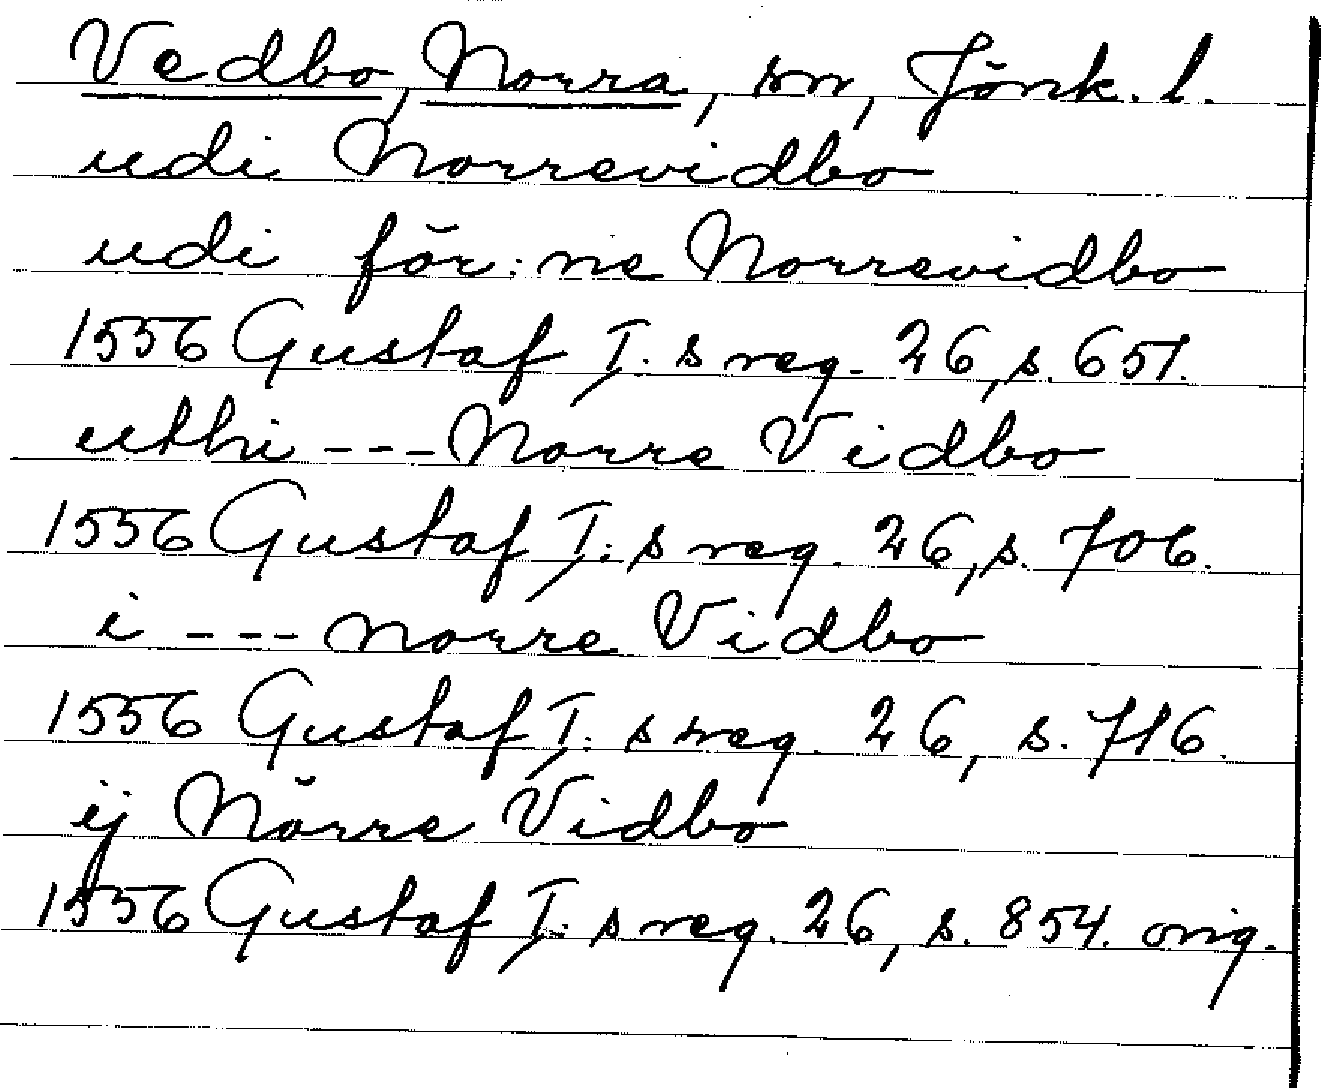 Vedbo, Norra, hd, Jönk. l.
udi Norrevidbo
udi för:ne Norrevidbo
1556 Gustaf I:s reg. 26, s. 651.
uthi --- Norre Vidbo
1556 Gustaf I:s reg. 26, s. 706.
i --- norre Vidbo
1556 Gustaf I:s reg. 26, s. 716.
ij Nörre Vidbo
1556 Gustaf I:s reg. 26, s. 854. orig.